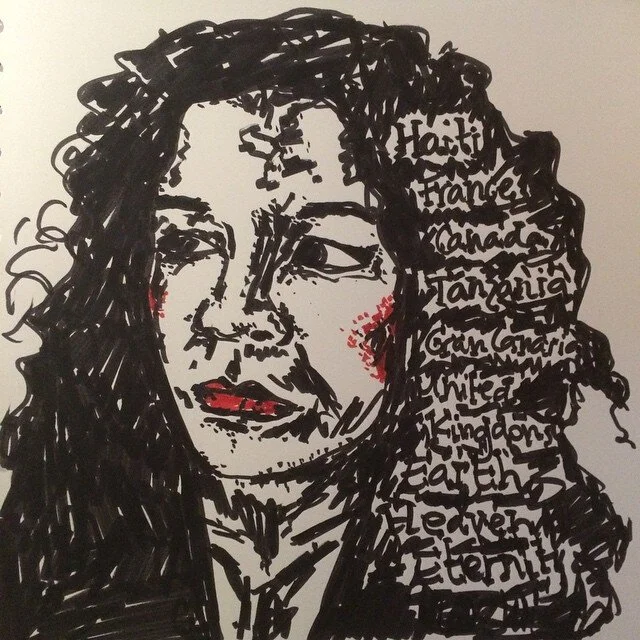 Haiti
France
Canada
Tanzania
Gran Canaria
United
Kingdom
Earth
Heaven
Eternity